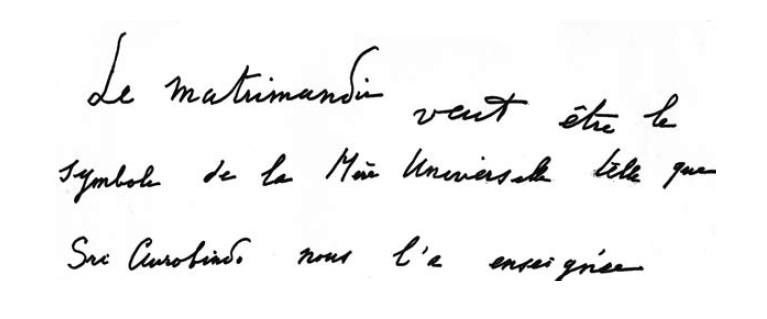 Le matrimandir veut être le
symbole de la Mère Universelle telle que
Sri Aurobindo nous l'a enseignée